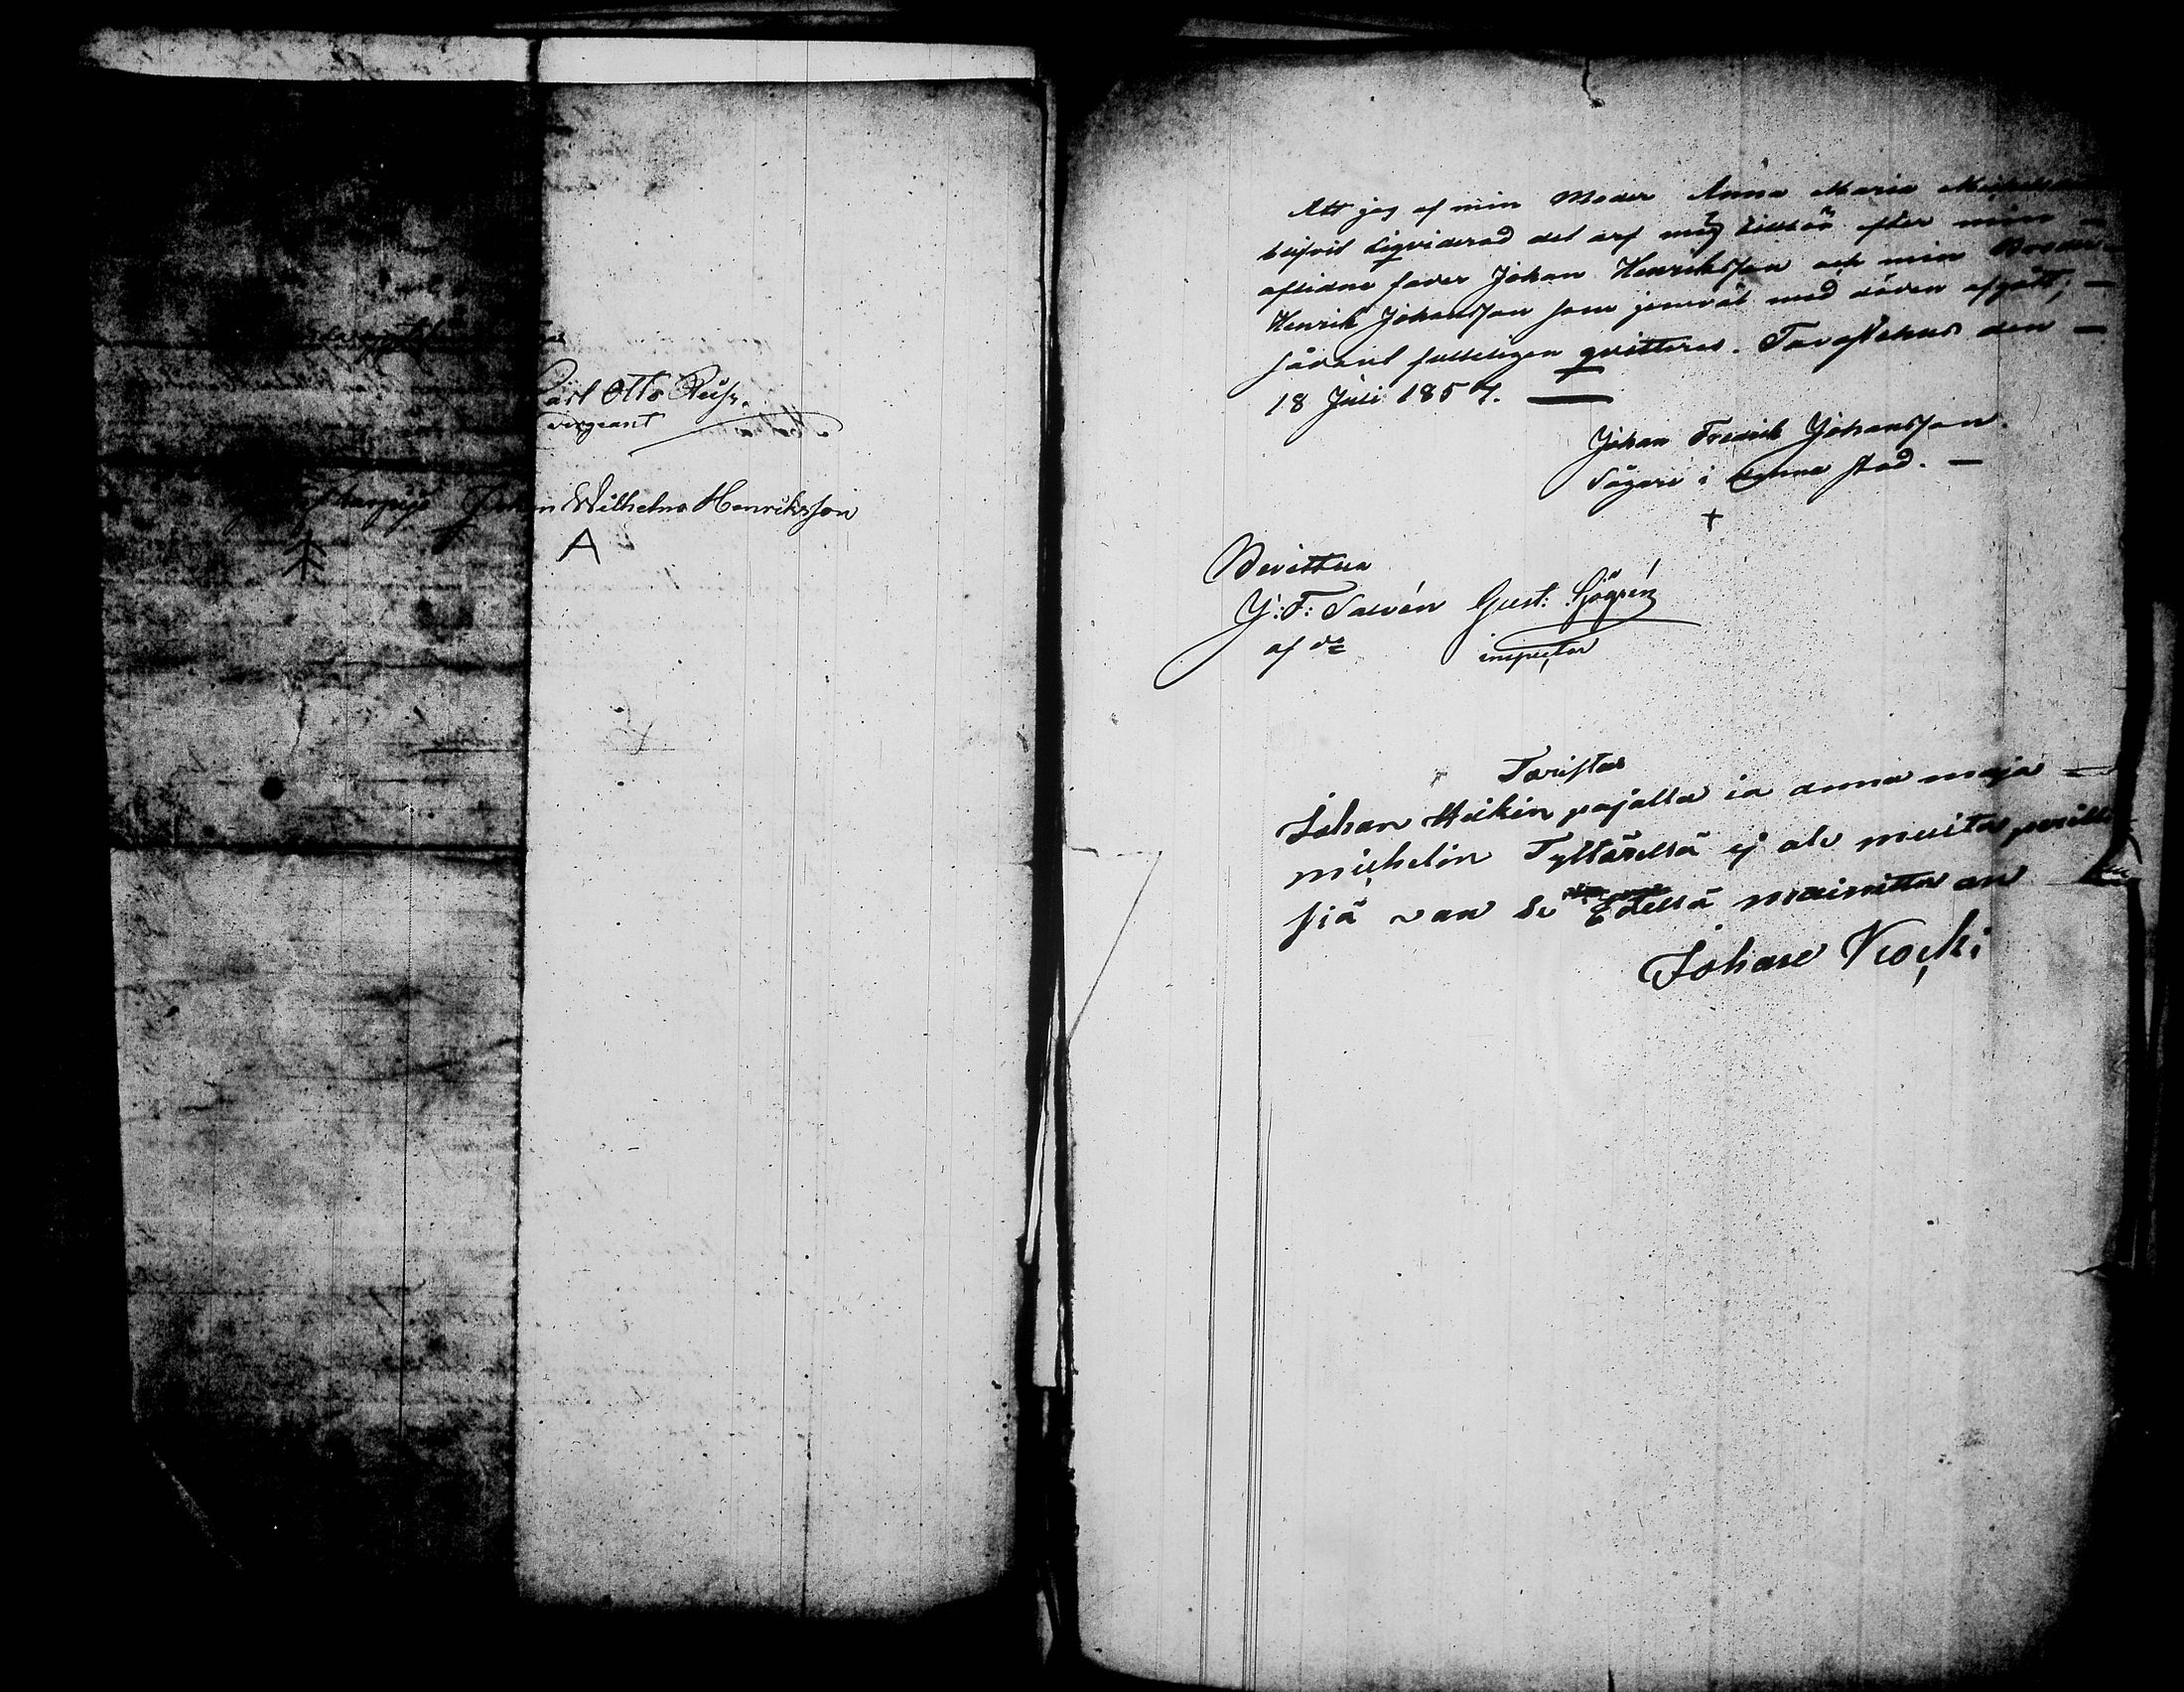 Carl Otto Reuse.
Sergeant
Johan Wilhelm Henriksson
A
Att jag af min Moder Anna Maria Michels
blifvit Liqviderad det arf mig tillkår efter min –
aflidne fader Johan Henriksson och min Broder
Henrik Johansson som jemväl med döden afgått; –
såväl fulleligen qvitteras. Tavastehus den –
18 Juli 1857. —
Johan Fredrik Johansson.
Sågare i denna stad. –
+
Bevittna
J: F: Salvén Gust: Sjögrén
af do inspector
Toristas
Johan Heikin pojalla ia anna maja –
michelin Tyttärellä ej ole muita perilli
siä van se Edellä mainittu on
Johan Kocki